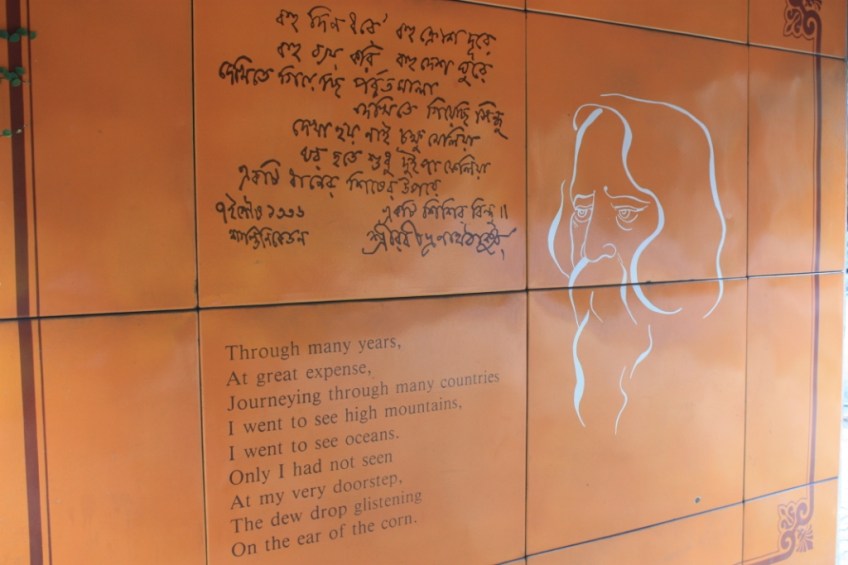 বহু দিন ধ'রে বহু ক্রোশ দূরে
বহু ব্যয় করি বহু দেশ ঘুরে
দেখিতে গিয়েছি পর্বতমালা
দেখিতে গিয়েছি সিন্ধু
দেখা হয় নাই চক্ষু মেলিয়া
ঘর হতে শুধু দুই পা ফেলিয়া
একটি ধানের শিষের উপরে
একটি শিশির বিন্দু॥
৭ই পৌষ ১৩৩৬
শান্তিনিকেতন
শ্রীরবীন্দ্রনাথ ঠাকুর
Through many years,
At great expense,
Journeying through many countries
I went to see high mountains,
I went to see oceans.
Only I had not seen
At my very doorstep,
The dew drop glistening
On the ear of the corn.